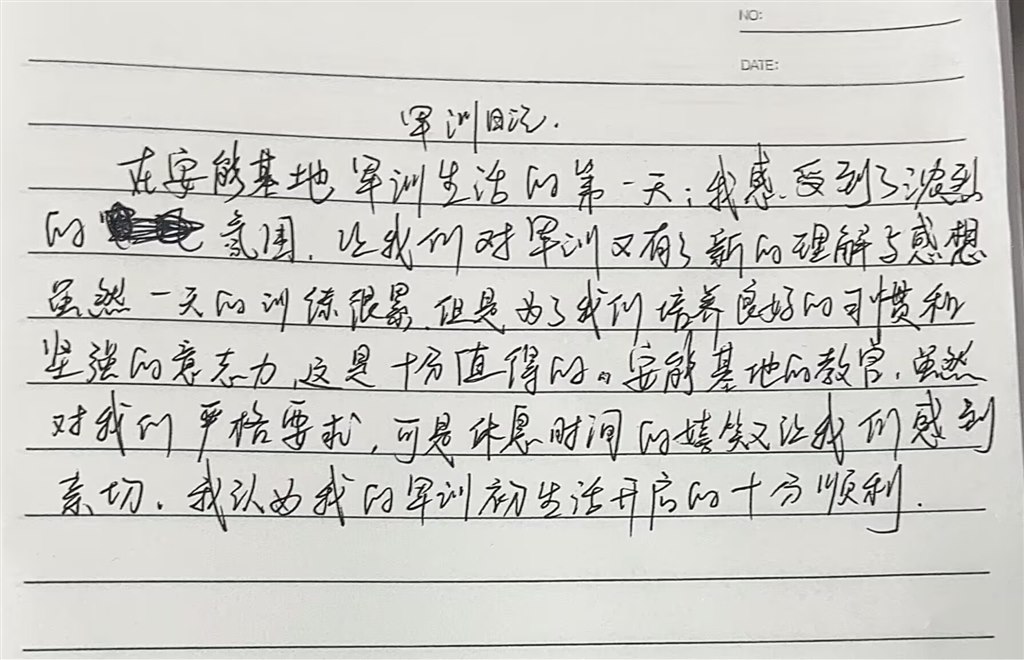 NO:
DATE:
军训日记.
在安能基地军训生活的第一天，我感受到了浓烈
的氛围，让我们对军训又有了新的理解与感想
虽然一天的训练很累，但是为了我们培养良好的习惯和
坚强的意志力，这是十分值得的。安能基地的教官，虽然
对我们严格要求，可是休息时间的嬉笑又让我们感到
亲切。我认为我的军训初生活开启的十分顺利.